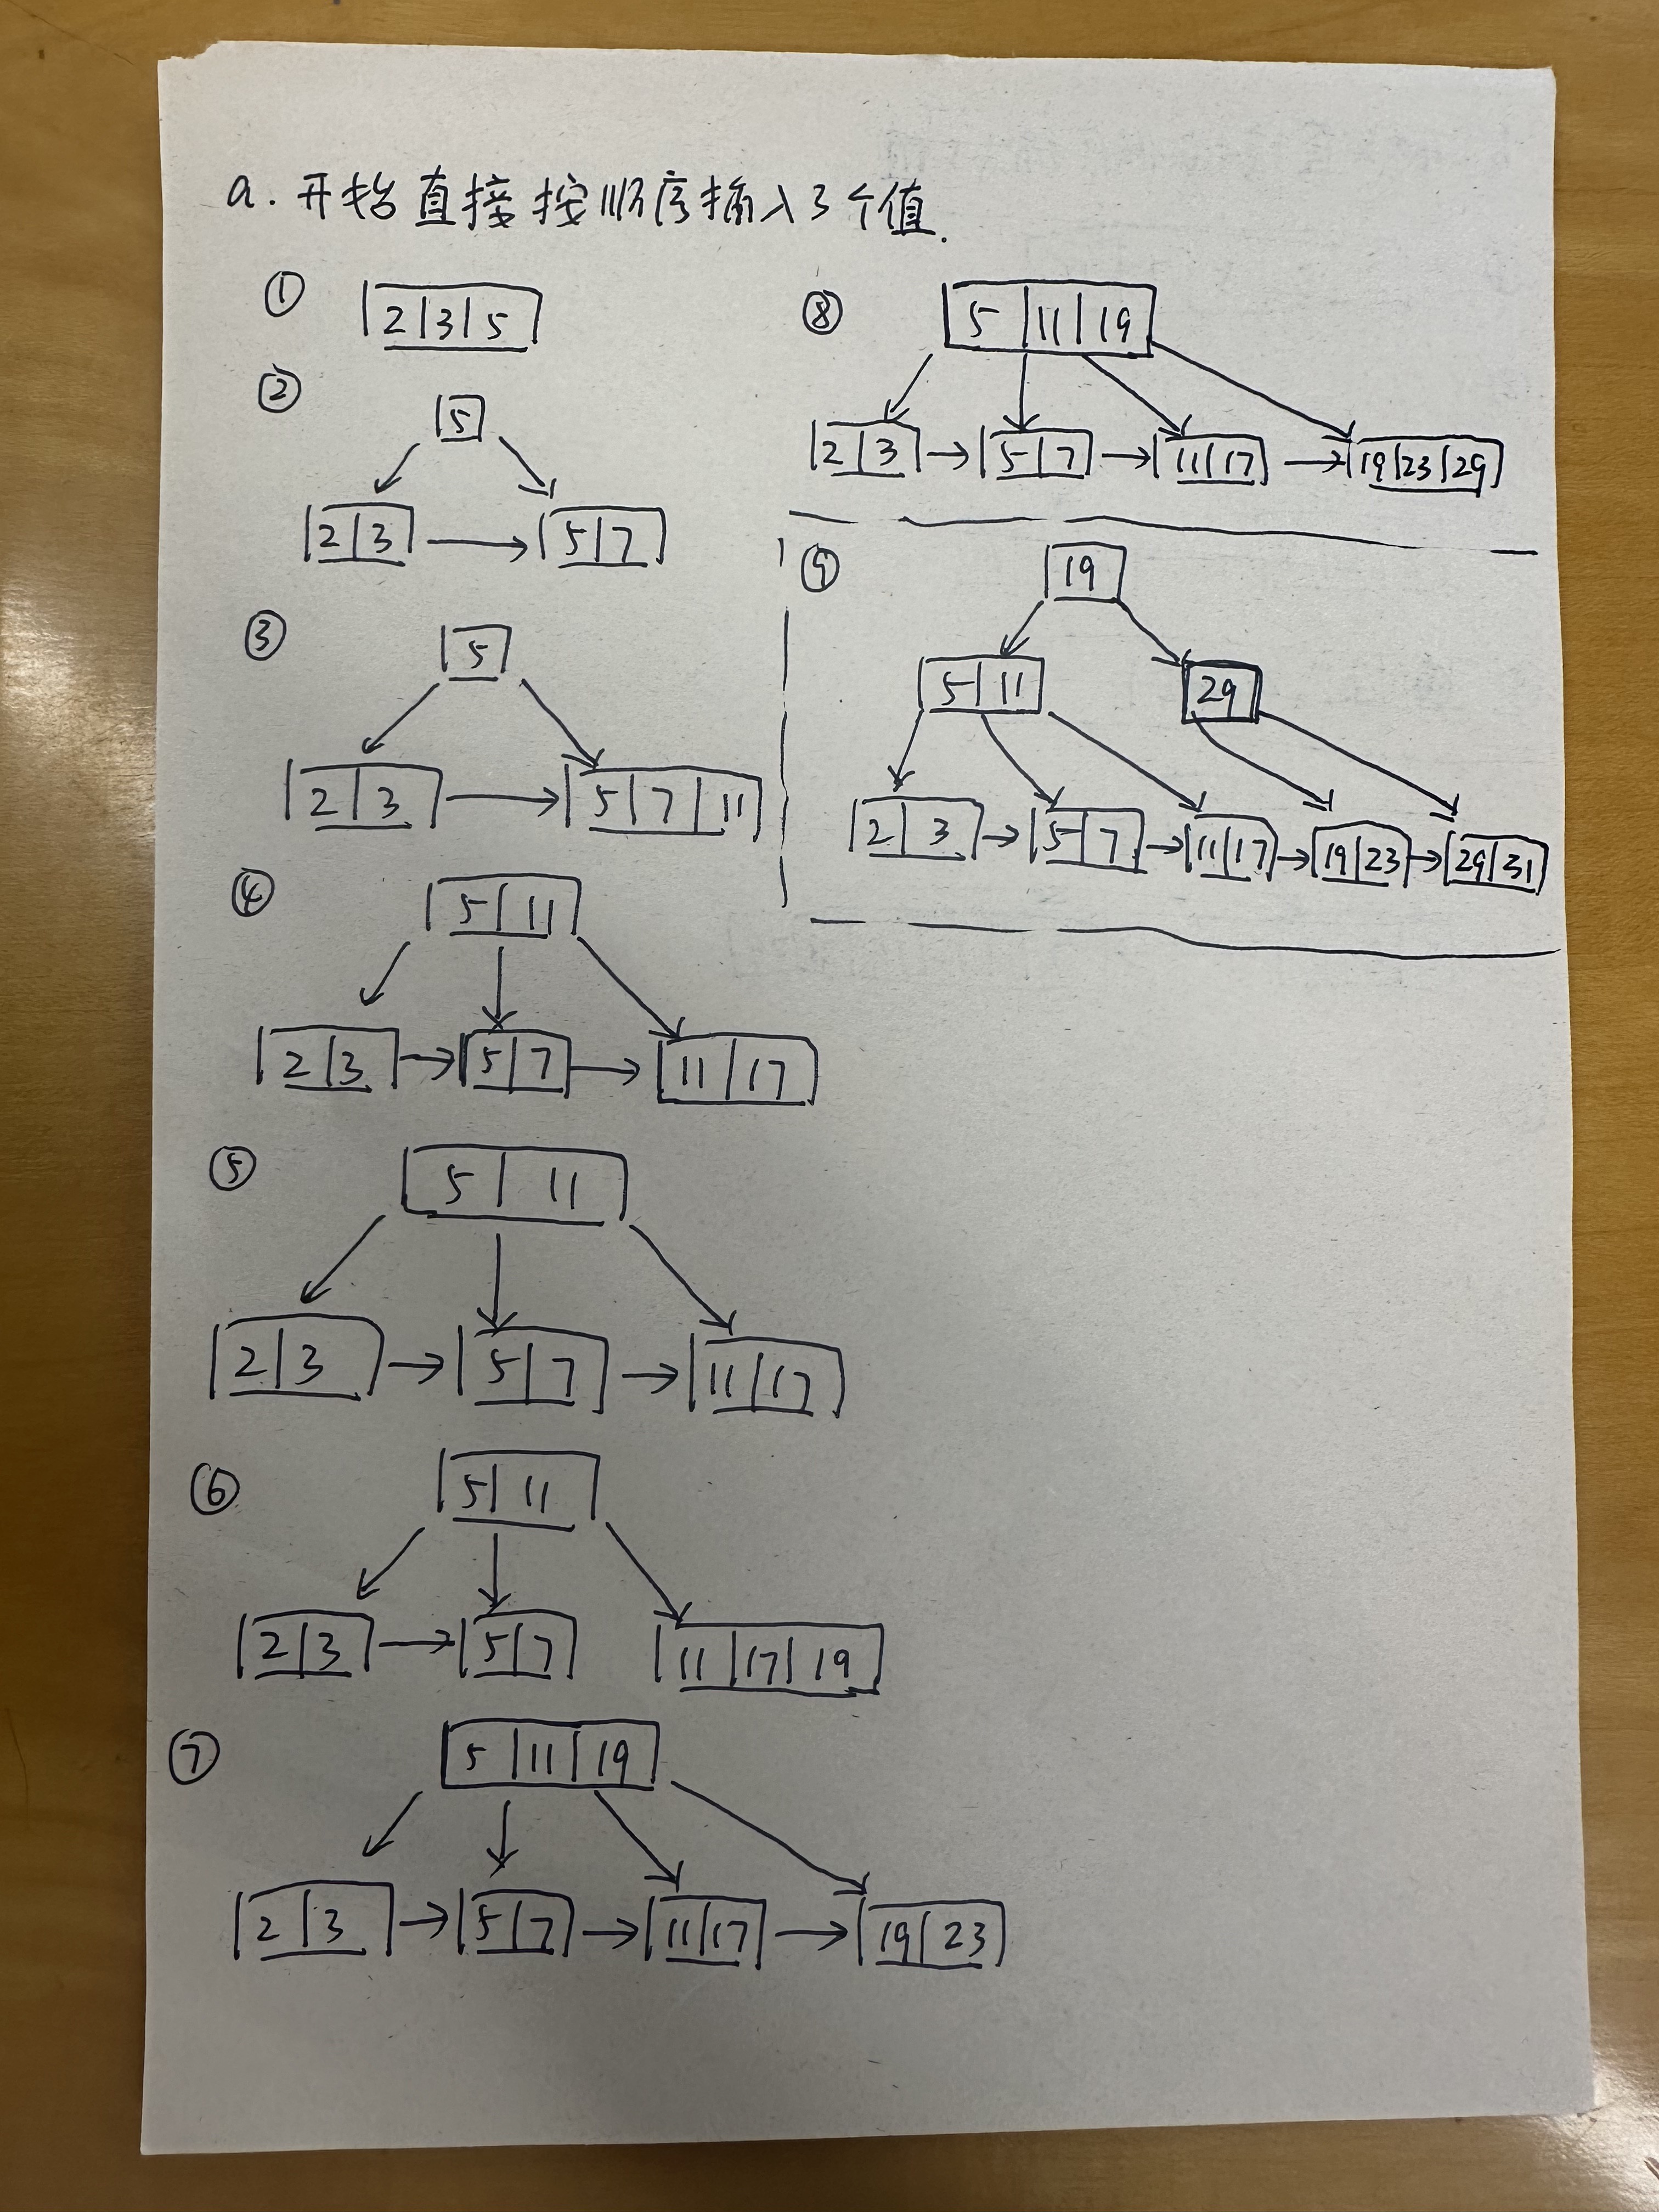 a. 开始直接按顺序插入3个值.
①
2 3 5
②
5
2 3 5 7
③
5
2 3 5 7 11
④
5 11
2 3 5 7 11 17
⑤
5 11
2 3 5 7 11 17
⑥
5 11
2 3 5 7 11 17 19
⑦
5 11 19
2 3 5 7 11 17 19 23
⑧
5 11 19
2 3 5 7 11 17 19 23 29
⑨
19
5 11 29
2 3 5 7 11 17 19 23 29 31